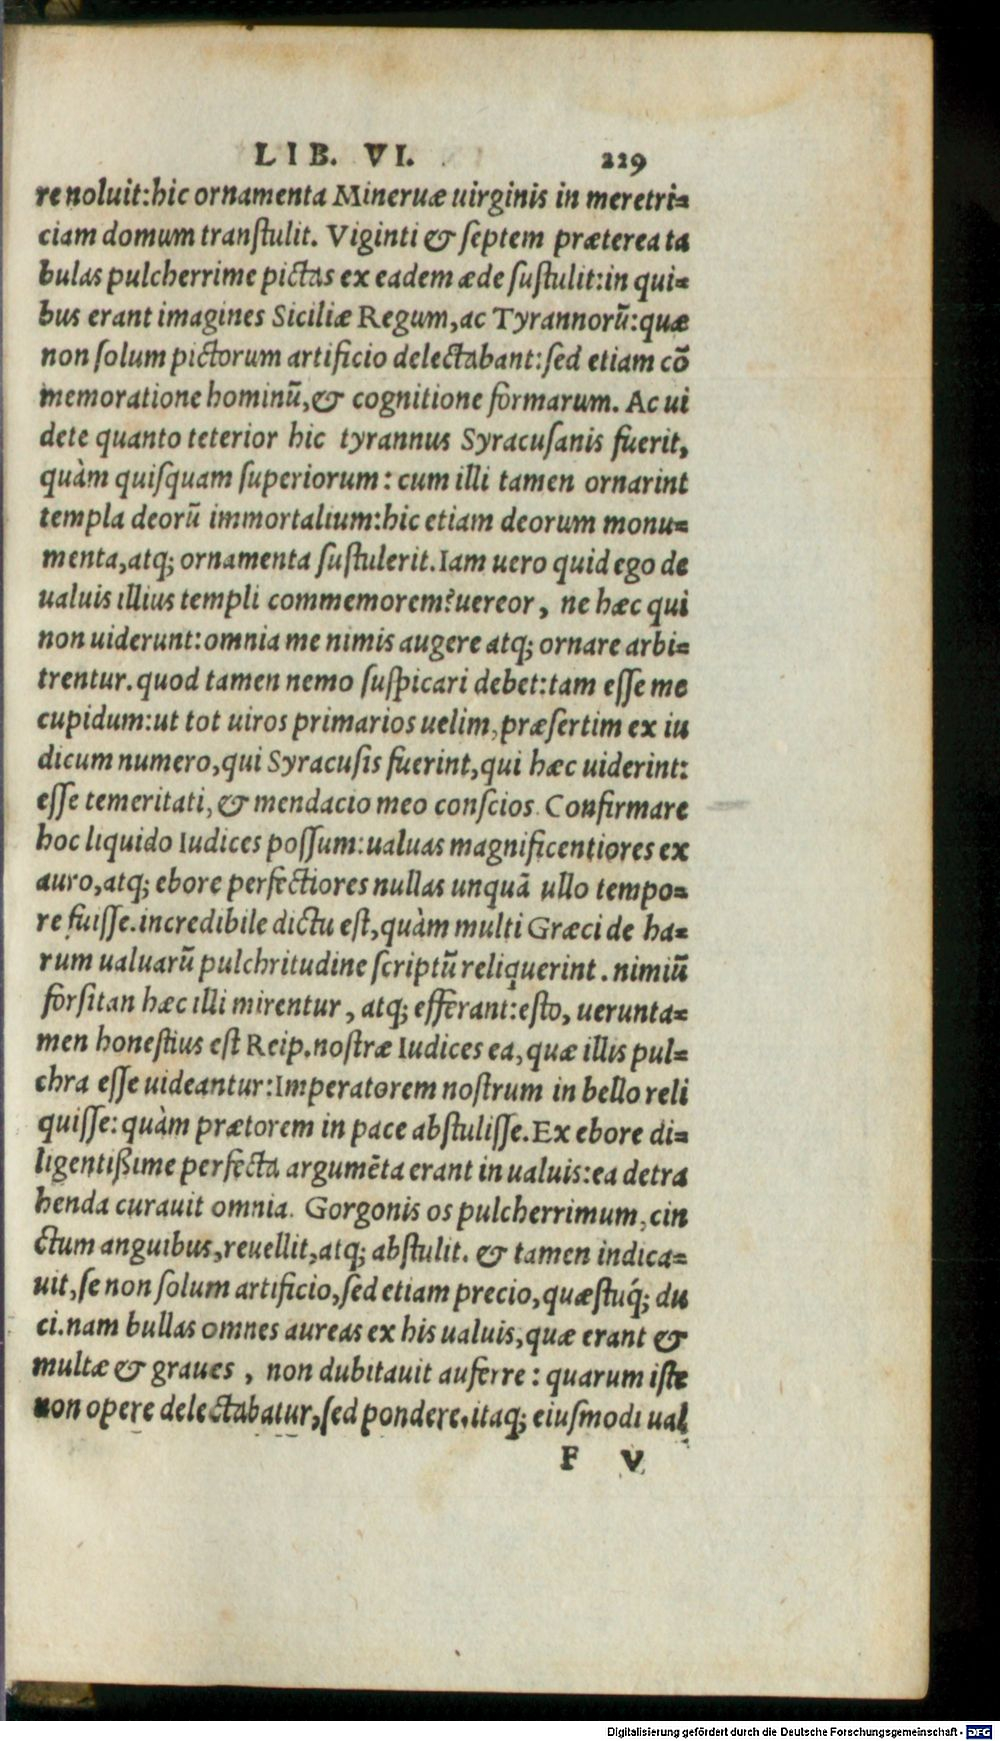 LIB. VI. 229
re noluit:hic ornamenta Mineruæ uirginis in meretri=
ciam domum transtulit. Viginti & septem præterea ta
bulas pulcherrime pictas ex eadem æde sustulit:in qui=
bus erant imagines Siciliæ Regum,ac Tyrannorū:quæ
non solum pictorum artificio delectabant:sed etiam cō
memoratione hominū,& cognitione formarum. Ac ui
dete quanto teterior hic tyrannus Syracusanis fuerit,
quàm quisquam superiorum: cum illi tamen ornarint
templa deorū immortalium:hic etiam deorum monu=
menta,atq; ornamenta sustulerit.Iam uero quid ego de
ualuis illius templi commemorem?uereor, ne hæc qui
non uiderunt:omnia me nimis augere atq; ornare arbi=
trentur.quod tamen nemo suspicari debet:tam esse me
cupidum:ut tot uiros primarios uelim,præsertim ex iu
dicum numero,qui Syracusis fuerint,qui hæc uiderint:
esse temeritati,& mendacio meo conscios.Confirmare
hoc liquido Iudices possum:ualuas magnificentiores ex
auro,atq; ebore perfectiores nullas unquā ullo tempo=
re fuisse.incredibile dictu est,quàm multi Græci de ha=
rum ualuarū pulchritudine scriptū reliquerint.nimiū
forsitan hæc illi mirentur, atq; efferant:esto, uerunta=
men honestius est Reip.nostræ Iudices ea,quæ illis pul=
chra esse uideantur:Imperatorem nostrum in bello reli
quisse:quàm prætorem in pace abstulisse.Ex ebore di=
ligentißime perfecta argumēta erant in ualuis:ea detra
henda curauit omnia. Gorgonis os pulcherrimum,cin
ctum anguibus,reuellit,atq; abstulit. & tamen indica=
uit,se non solum artificio,sed etiam precio,quæstuq́; du
ci.nam bullas omnes aureas ex his ualuis,quæ erant &
multæ & graues , non dubitauit auferre: quarum iste
non opere delectabatur,sed pondere.itaq; eiusmodi ual
F V
Digitalisierung gefördert durch die Deutsche Forschungsgemeinschaft - DFG